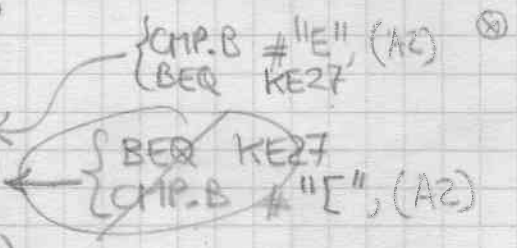 CMP.B #"E", (A2)
BEQ KE27
BEQ KE27
CMP.B #"[", (A2)